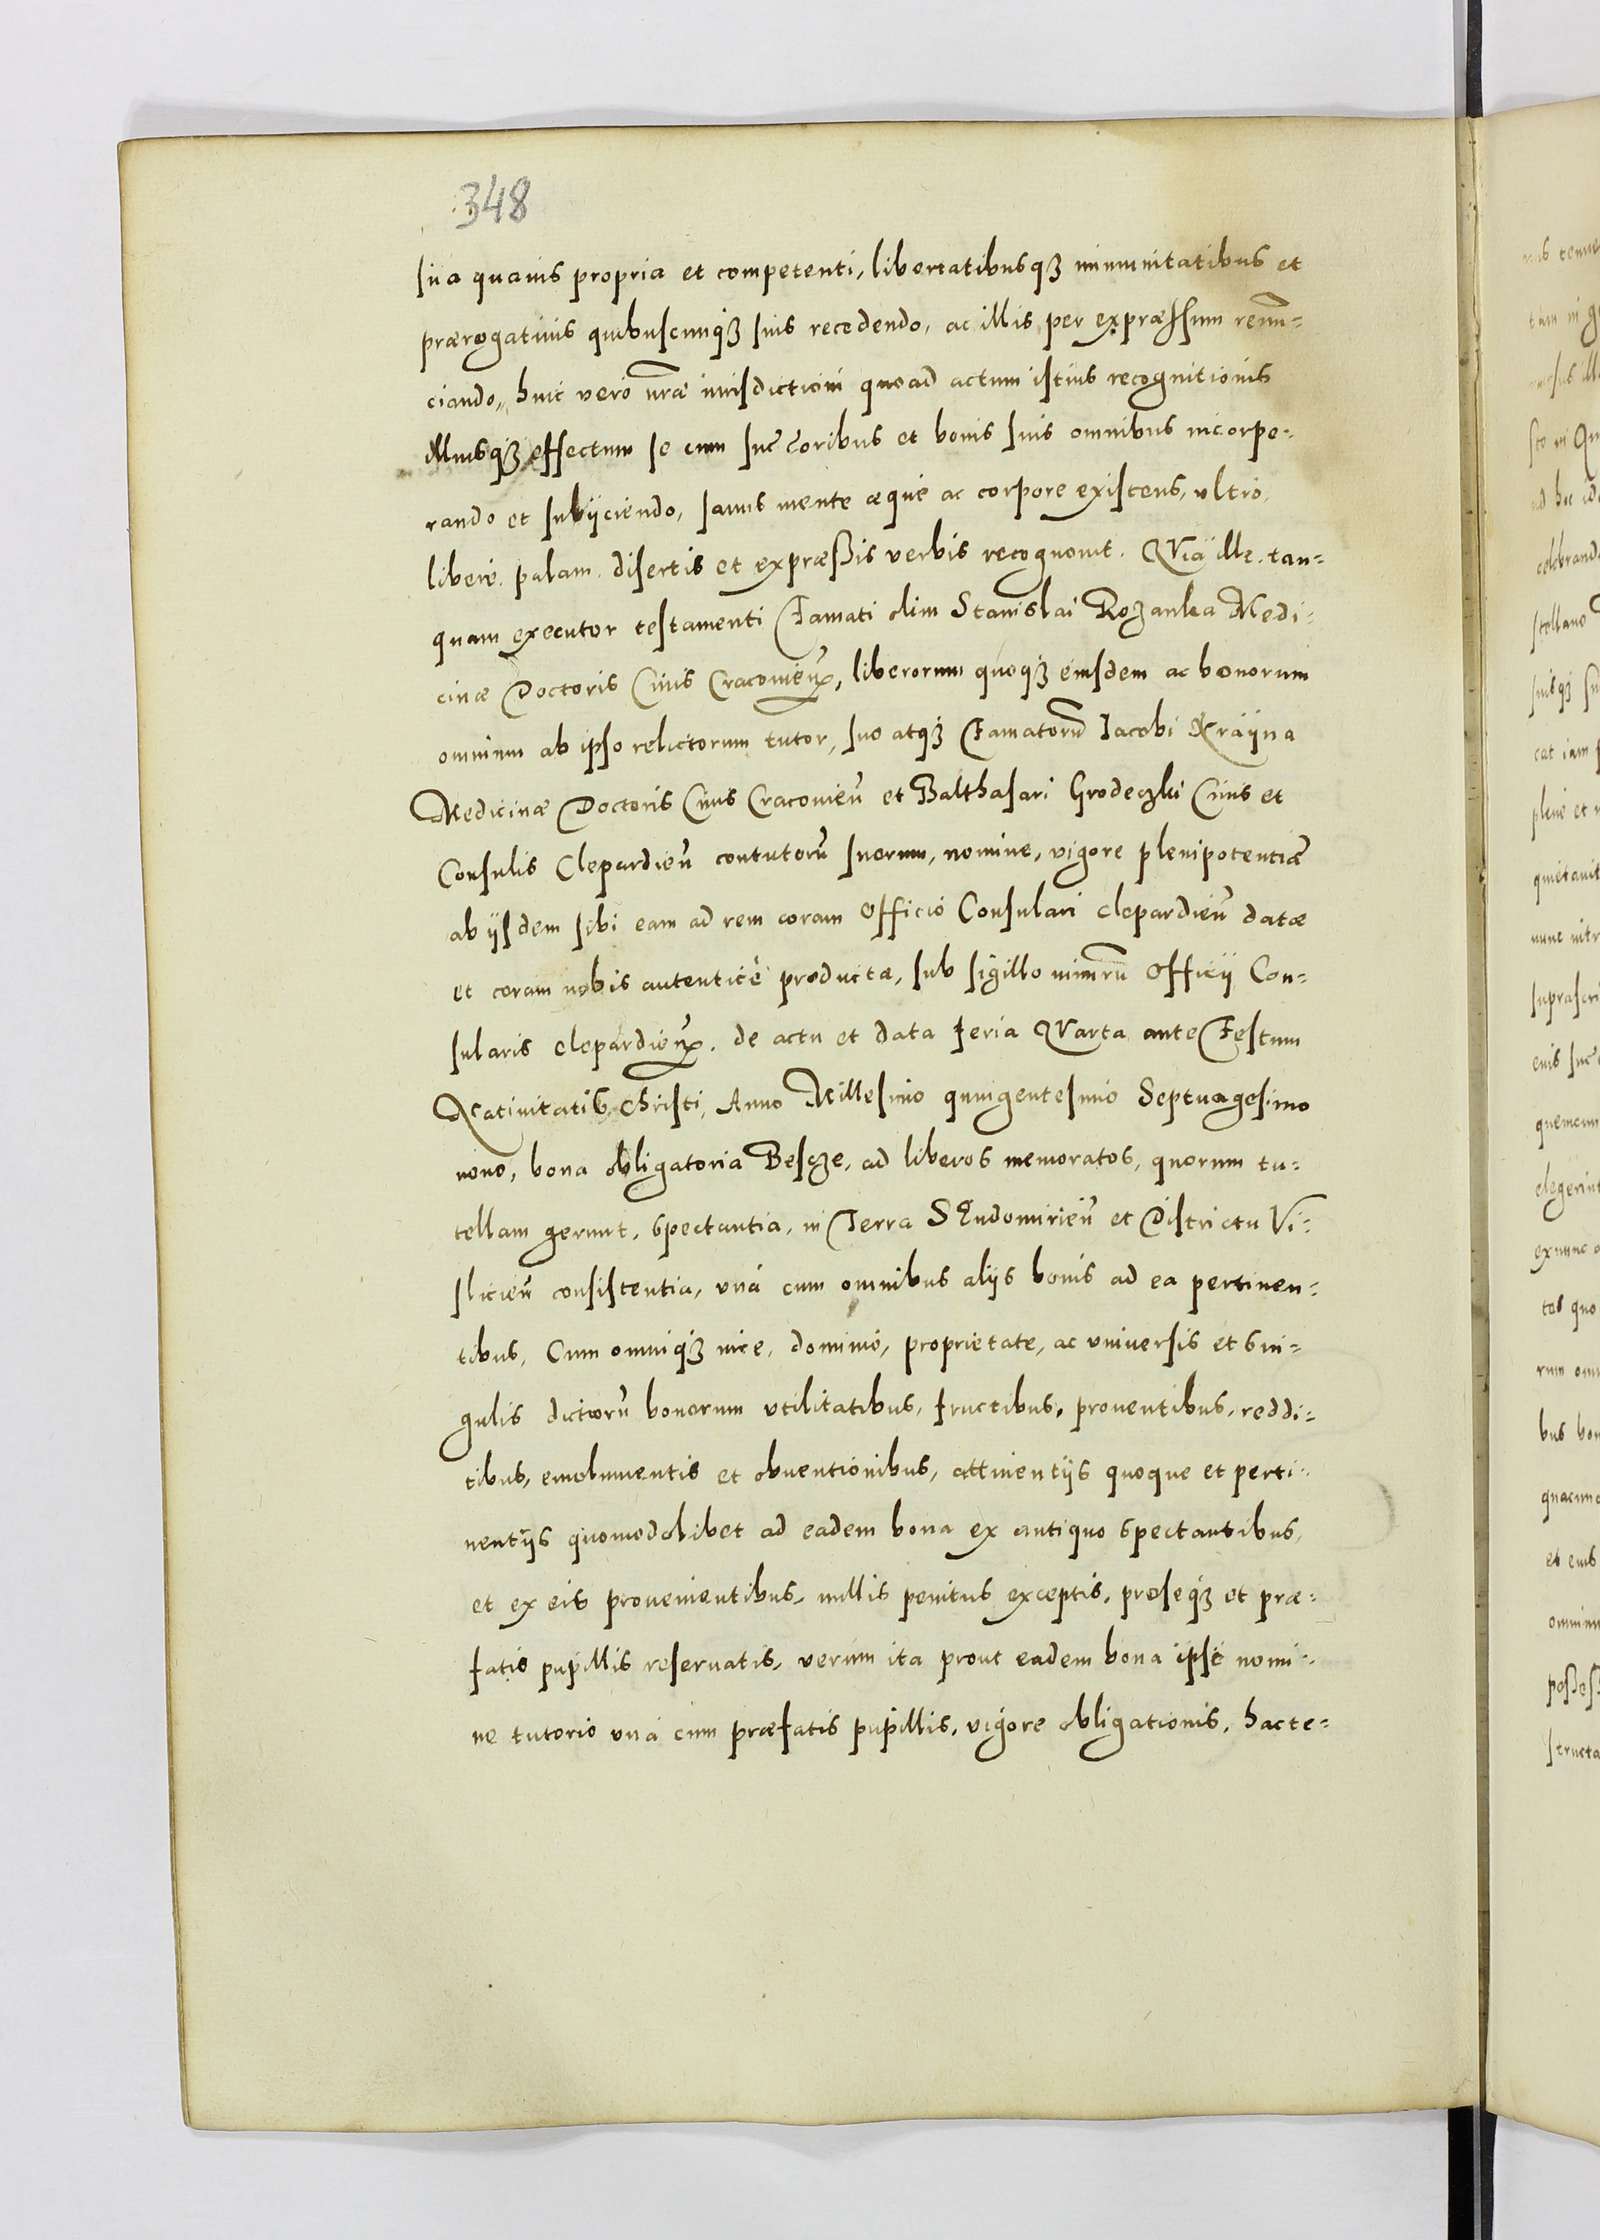 348
sua quauis propria et competenti, libertatibusqʒ immunitatibus et
prærogatiuis quibuscunqʒ suis recedendo, ac illis per expræssum renun=
ciando, huic vero nræ iurisdictioni quoad actum istius recognitionis
illiusqʒ effectum se cum succoribus et bonis suis omnibus incorpo=
rando et subÿciendo, sanus mente æque ac corpore existens, vltro,
libere, palam, disertis et expræßis verbis recognouit. QVia ille, tan=
quam executor testamenti Famati olim Stanislai Rozanka Medi=
cinæ Doctoris Ciuis Cracouien̄, liberorum quoqʒ eiusdem ac bonorum
omnium ab ipso relictorum tutor, suo atqʒ Famatorū Iacobi Kraÿna
Medicinæ Doctoris Ciuis Cracouien̄ et Balthasari Grodeczki Ciuis et
Consulis Clepardien̄ contutorū suorum, nomine, vigore plenipotentiæ
ab ÿsdem sibi eam ad rem coram Officio Consulari Clepardien̄ datæ
et coram nobis autenticè productæ, sub sigillo nimirū Officÿ Con=
sularis Clepardien̄. de actu et data Feria QVarta ante Festum
Natiuitatis Christi, Anno Millesimo quingentesimo Septuagesimo
nono, bona obligatoria BesczE, ad liberos memoratos, quorum tu=
tellam gerunt, spectantia, in Terra SEndomirien̄ et Districtu Vi=
slicien̄ consistentia, vná cum omnibus alÿs bonis ad ea pertinen=
tibus, Cum omniqʒ iure, dominio, proprietate, ac vniuersis et sin=
gulis dictorū bonorum vtilitatibus, fructibus, prouentibus, reddi=
tibus, emolumentis et obuentionibus, attinentÿs quoque et perti=
nentÿs quomodolibet ad eadem bona ex antiquo spectantibus,
et ex eis prouenientibus, nullis penitus exceptis, proseqʒ et præ=
fatis pupillis reseruatis, verùm ita prout eadem bona ipse nomi=
ne tutorio vná cum præfatis pupillis, vigore obligationis, hacte=